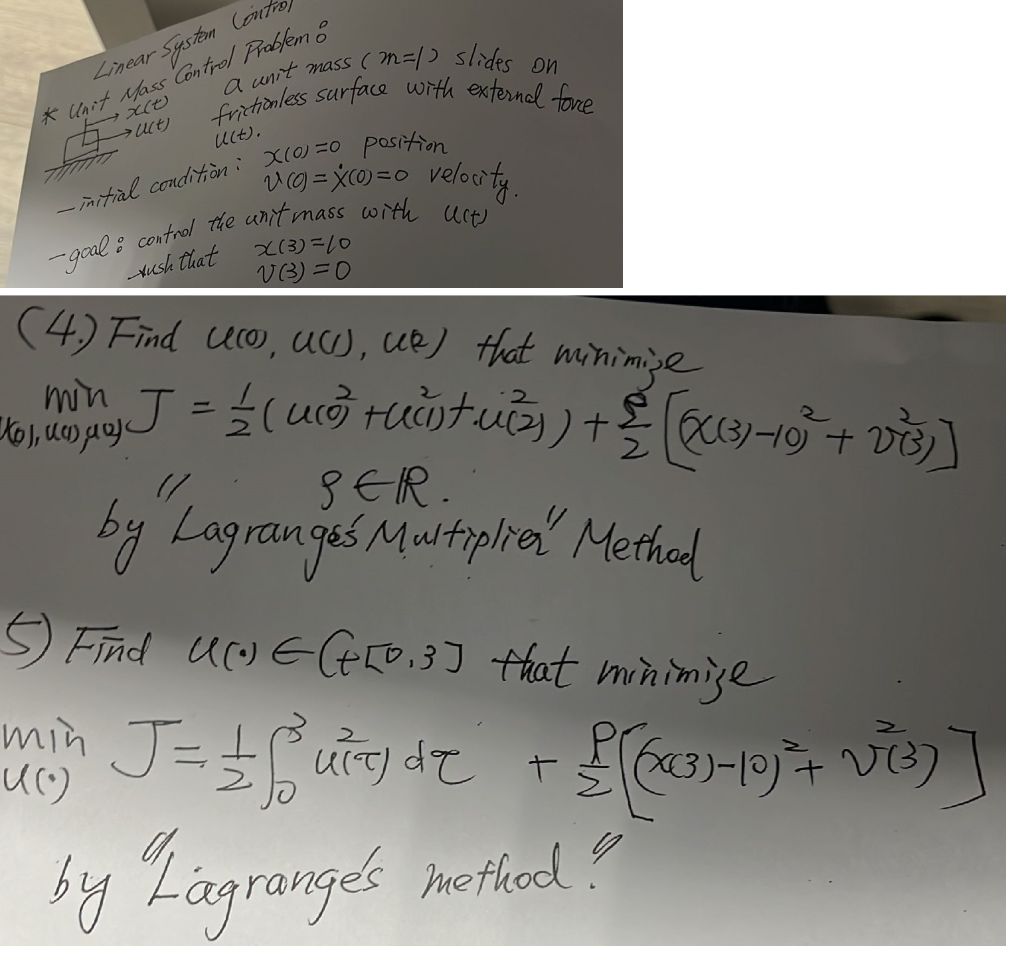 Linear System Control
* Unit Mass Control Problem :
x(t)
u(t)
a unit mass (m=1) slides on
frictionless surface with external force
u(t).
- initial condition : x(0)=0 position
v(0)=ẋ(0)=0 velocity.
- goal : control the unit mass with u(t)
such that x(3)=10
v(3)=0
(4.) Find u(0), u(1), u(2) that minimize
min J = 1/2 (u(0)² + u(1)² + u(2)²) + ρ/2 [(x(3)-10)² + v²(3)]
u(0), u(1), u(2)
ρ ∈ ℝ.
by "Lagrange's Multiplier" Method
5) Find u(·) ∈ Ct[0,3] that minimize
min J = 1/2 ∫₀³ u²(τ) dτ + ρ/2 [(x(3)-10)² + v²(3)]
u(·)
by "Lagrange's method."